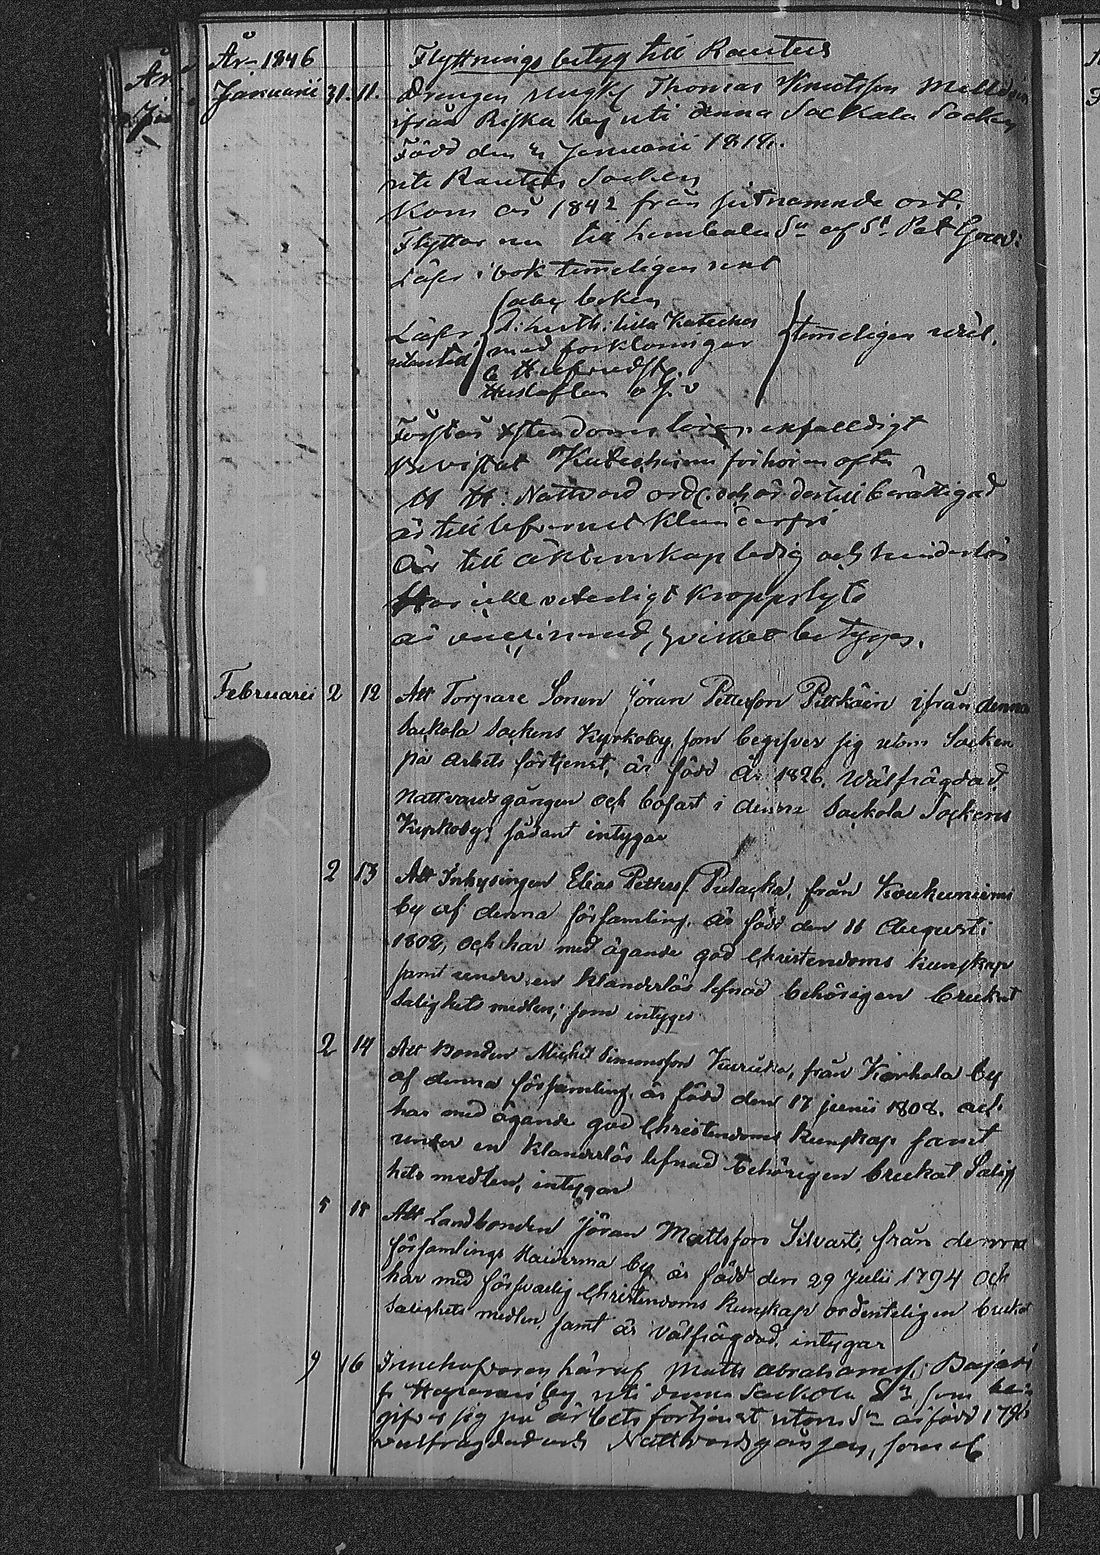 År 1846
Flyttnings betyg till Rautus
Januarii 31. 11. Drengen Thomas Knutsson
ifrån Riska by uti denna Sackola Socken
Född den Januarii 1818.
uti Rautus Socken
Kom år 1842 från sistnämnde ort.
Flyttar nu till Lembala Sn af St Pet Gouv:
Läser i bok temeligen rent
abc boken
Läser Luth: lilla Kateches
utantill med förklaringar temeligen väl.
Hustaflan
Förstår Xstendoms enfalldigt
Bevistat Katechismi förhören ofta
H H. Nattvard och är dertill berättigad
är till lefvernet
Är till äktenskap ledig och hinderlös
Har icke veterligt kroppslyte
är hvilket betyges.
Februarii 2 12 Att Torpare Sonen Jöran Pettersson Pitkäin ifrån denna
Sackola Sockens Kyrkoby, som begifver sig utom Socken
på arbets förtjenst, är född år 1826. Välfrägdad,
Nattvardsgången och bofast i denna Sackola Sockens
Kyrkoby; sådant intygar
2 13 Att Inhysingen Elias Petterss. Pulacka, från Koukuniemi
by af denna församling, är född den 16 Augusti
1802, och har med ägande god Christendoms kunskap
samt under en klanderlös lefnad behörigen brukat
Salighets medlen; som intygas
2 14 Att Bonden Michel Simonsson Kurikka, från Karhola by
af denna församling, är född den 17 junii 1808. och
har med ägande god Christendoms kunskap samt
under en klanderlös lefnad behörigen brukat Salig
hets medlen, intygar
5 15 Att Landbonden Jöran Mattsson från denna
församlings Haiderma by är född den 29 Julii 1794 och
har med försvarlig Christendoms kunskap ordenteligen brukat
Salighets medlen samt är välfrägdad, intygar
9 16 Innehafvaren häraf Matts Abrahamss: Bajari
fr by uti denna Sackola Sn som be-
gifver sig på arbets förtjenst utom Sn är född
välfrägdad och Nattvardsgången, som